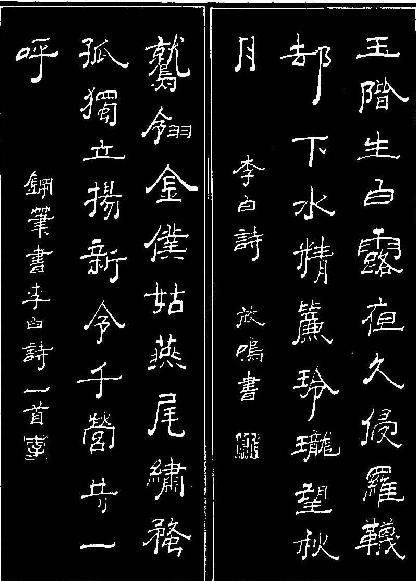 玉階生白露夜久侵羅襪
却下水精簾玲瓏望秋
月
李白詩 放鳴書
鷲翎金僕姑燕尾繡蝥
孤獨立揚新令千營共一
呼
鋼筆書李白詩一首